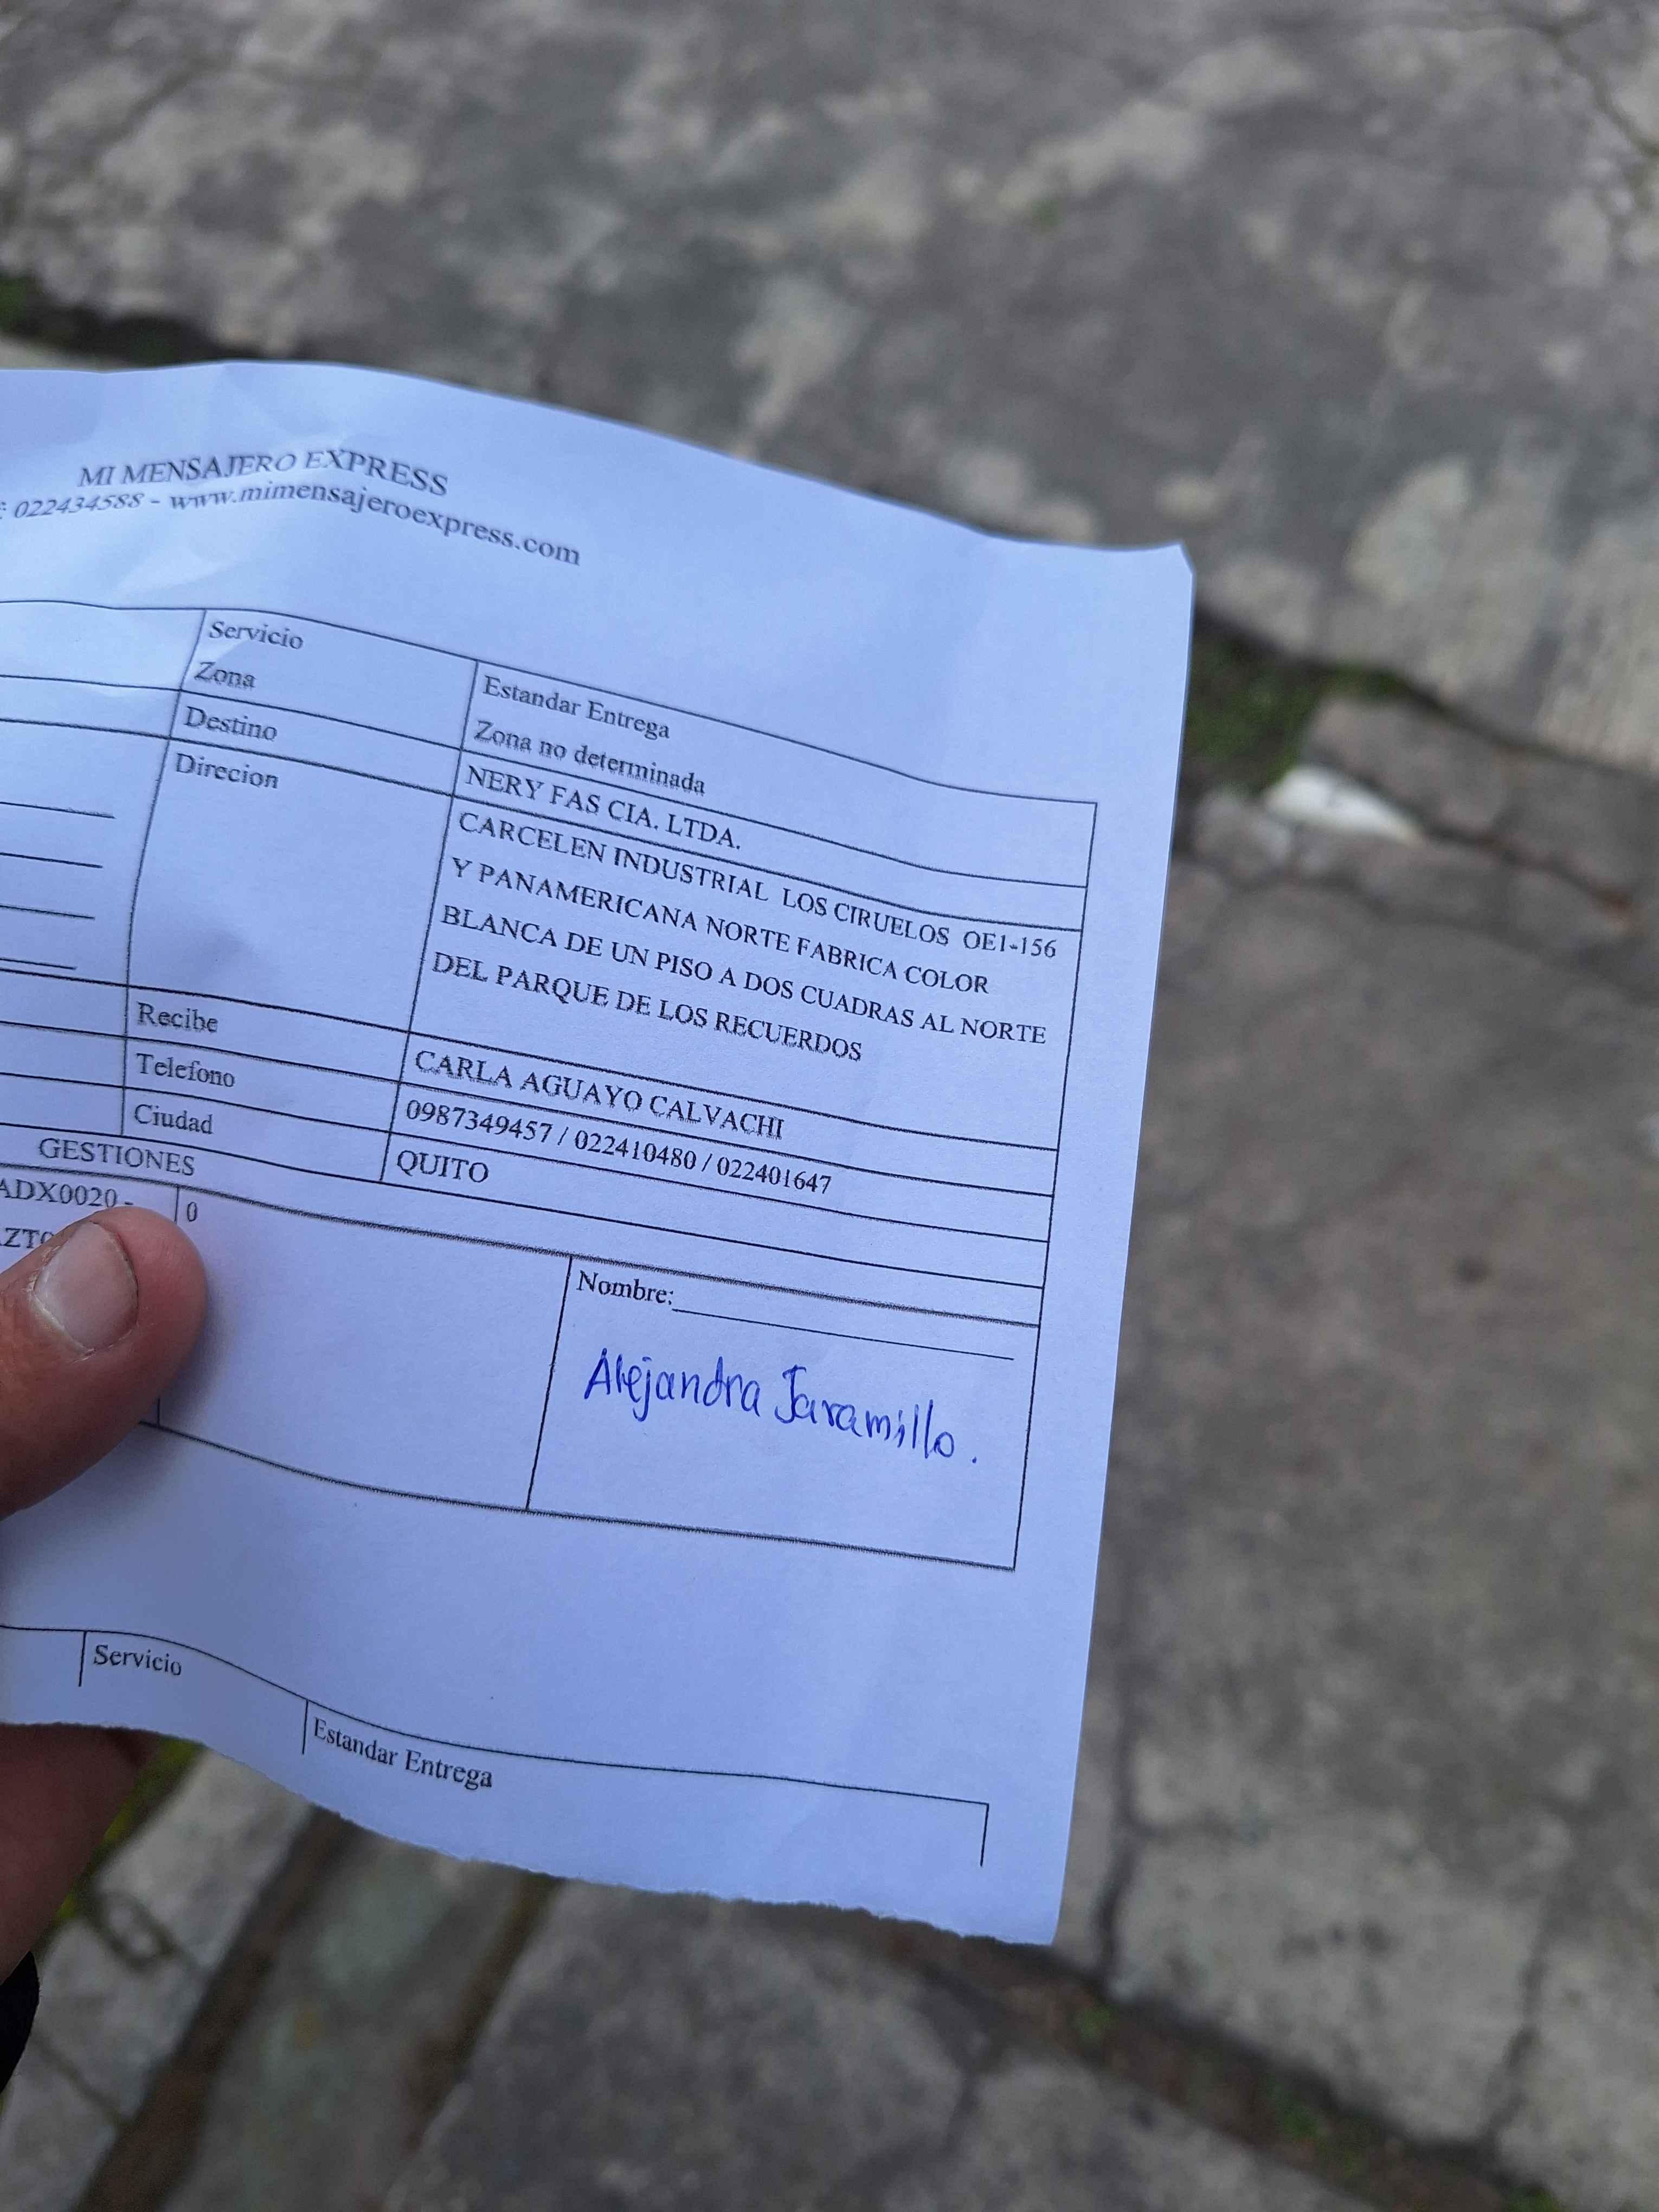 MI MENSAJERO EXPRESS
: 022434588 - www.mimensajeroexpress.com
Servicio
Estandar Entrega
Zona
Zona no determinada
Destino
NERY FAS CIA. LTDA.
Direcion
CARCELEN INDUSTRIAL LOS CIRUELOS OE1-156
Y PANAMERICANA NORTE FABRICA COLOR
BLANCA DE UN PISO A DOS CUADRAS AL NORTE
DEL PARQUE DE LOS RECUERDOS
Recibe
CARLA AGUAYO CALVACHI
Telefono
0987349457 / 022410480 / 022401647
Ciudad
QUITO
GESTIONES
ADX0020 -
0
Nombre:
Alejandra Jaramillo.
Servicio
Estandar Entrega